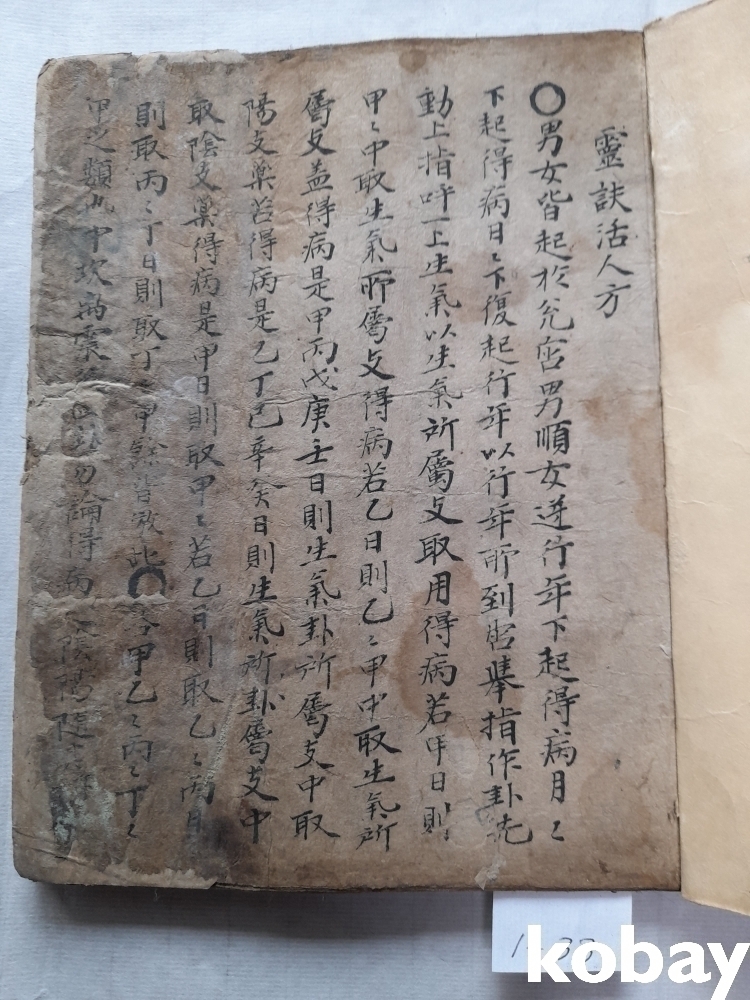 靈訣活人方
○男女皆起於兌宮男順女逆行年下起得病月〻
下起得病日〻下復起行年以行年所到宮擧指作卦先
動上指呼一上生氣以生氣所屬支取用得病若甲日則
甲〻中取生氣所屬支得病若乙日則乙〻甲中取生氣所
屬支盖得病是甲丙戊庚壬日則生氣卦所屬支中取
陽支藥若得病是乙丁己辛癸日則生氣所卦屬支中
取陰支藥得病是甲日則取甲〻若乙日則取乙〻丙日
則取丙〻丁日則取丁〻甲餘皆放此○ 甲乙〻丙〻丁〻
甲之類也中坎 震 勿論得病 陰陽
1-33
kobay